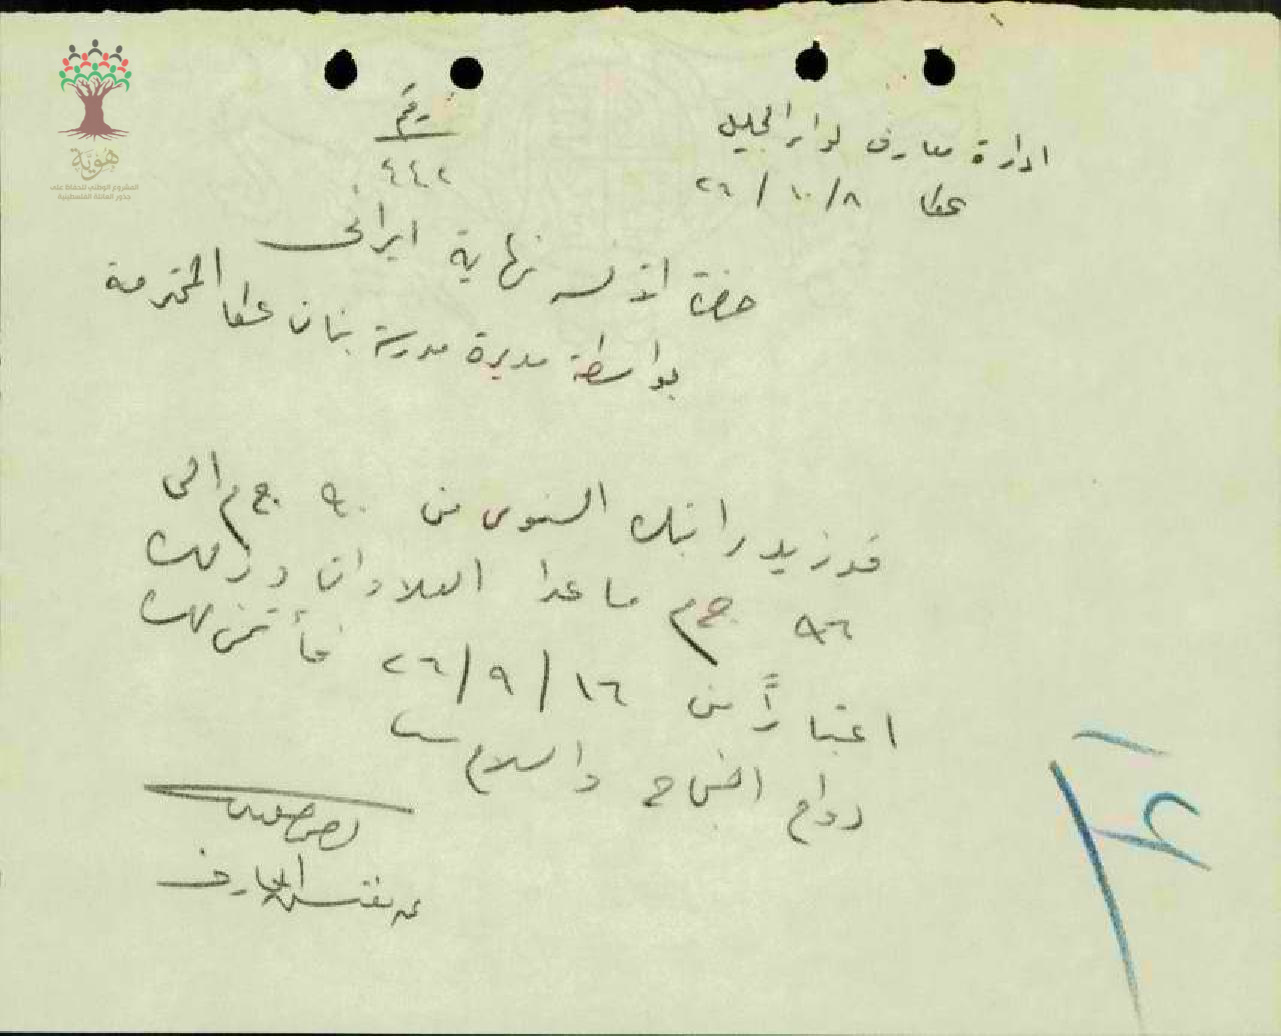 هُوِيَّة
المشروع الوطني للحفاظ على
جذور العائلة الفلسطينية
ادارة معارف لواء الجليل
عكا ٨/١٠/٢٦
رقم
٤٤٢
حضرة الآنسه نهاية ايراني
بواسطة مديرة مدرسة بنات عكا المحترمة
قد زيد راتبك السنوي من ٩٠ ج.م الى
٩٦ ج.م ما عدا العلاوات وذلك
اعتباراً من ١٦/٩/٢٦ فأتمنى لك
دوام النجاح والسلام
عن مفتش المعارف